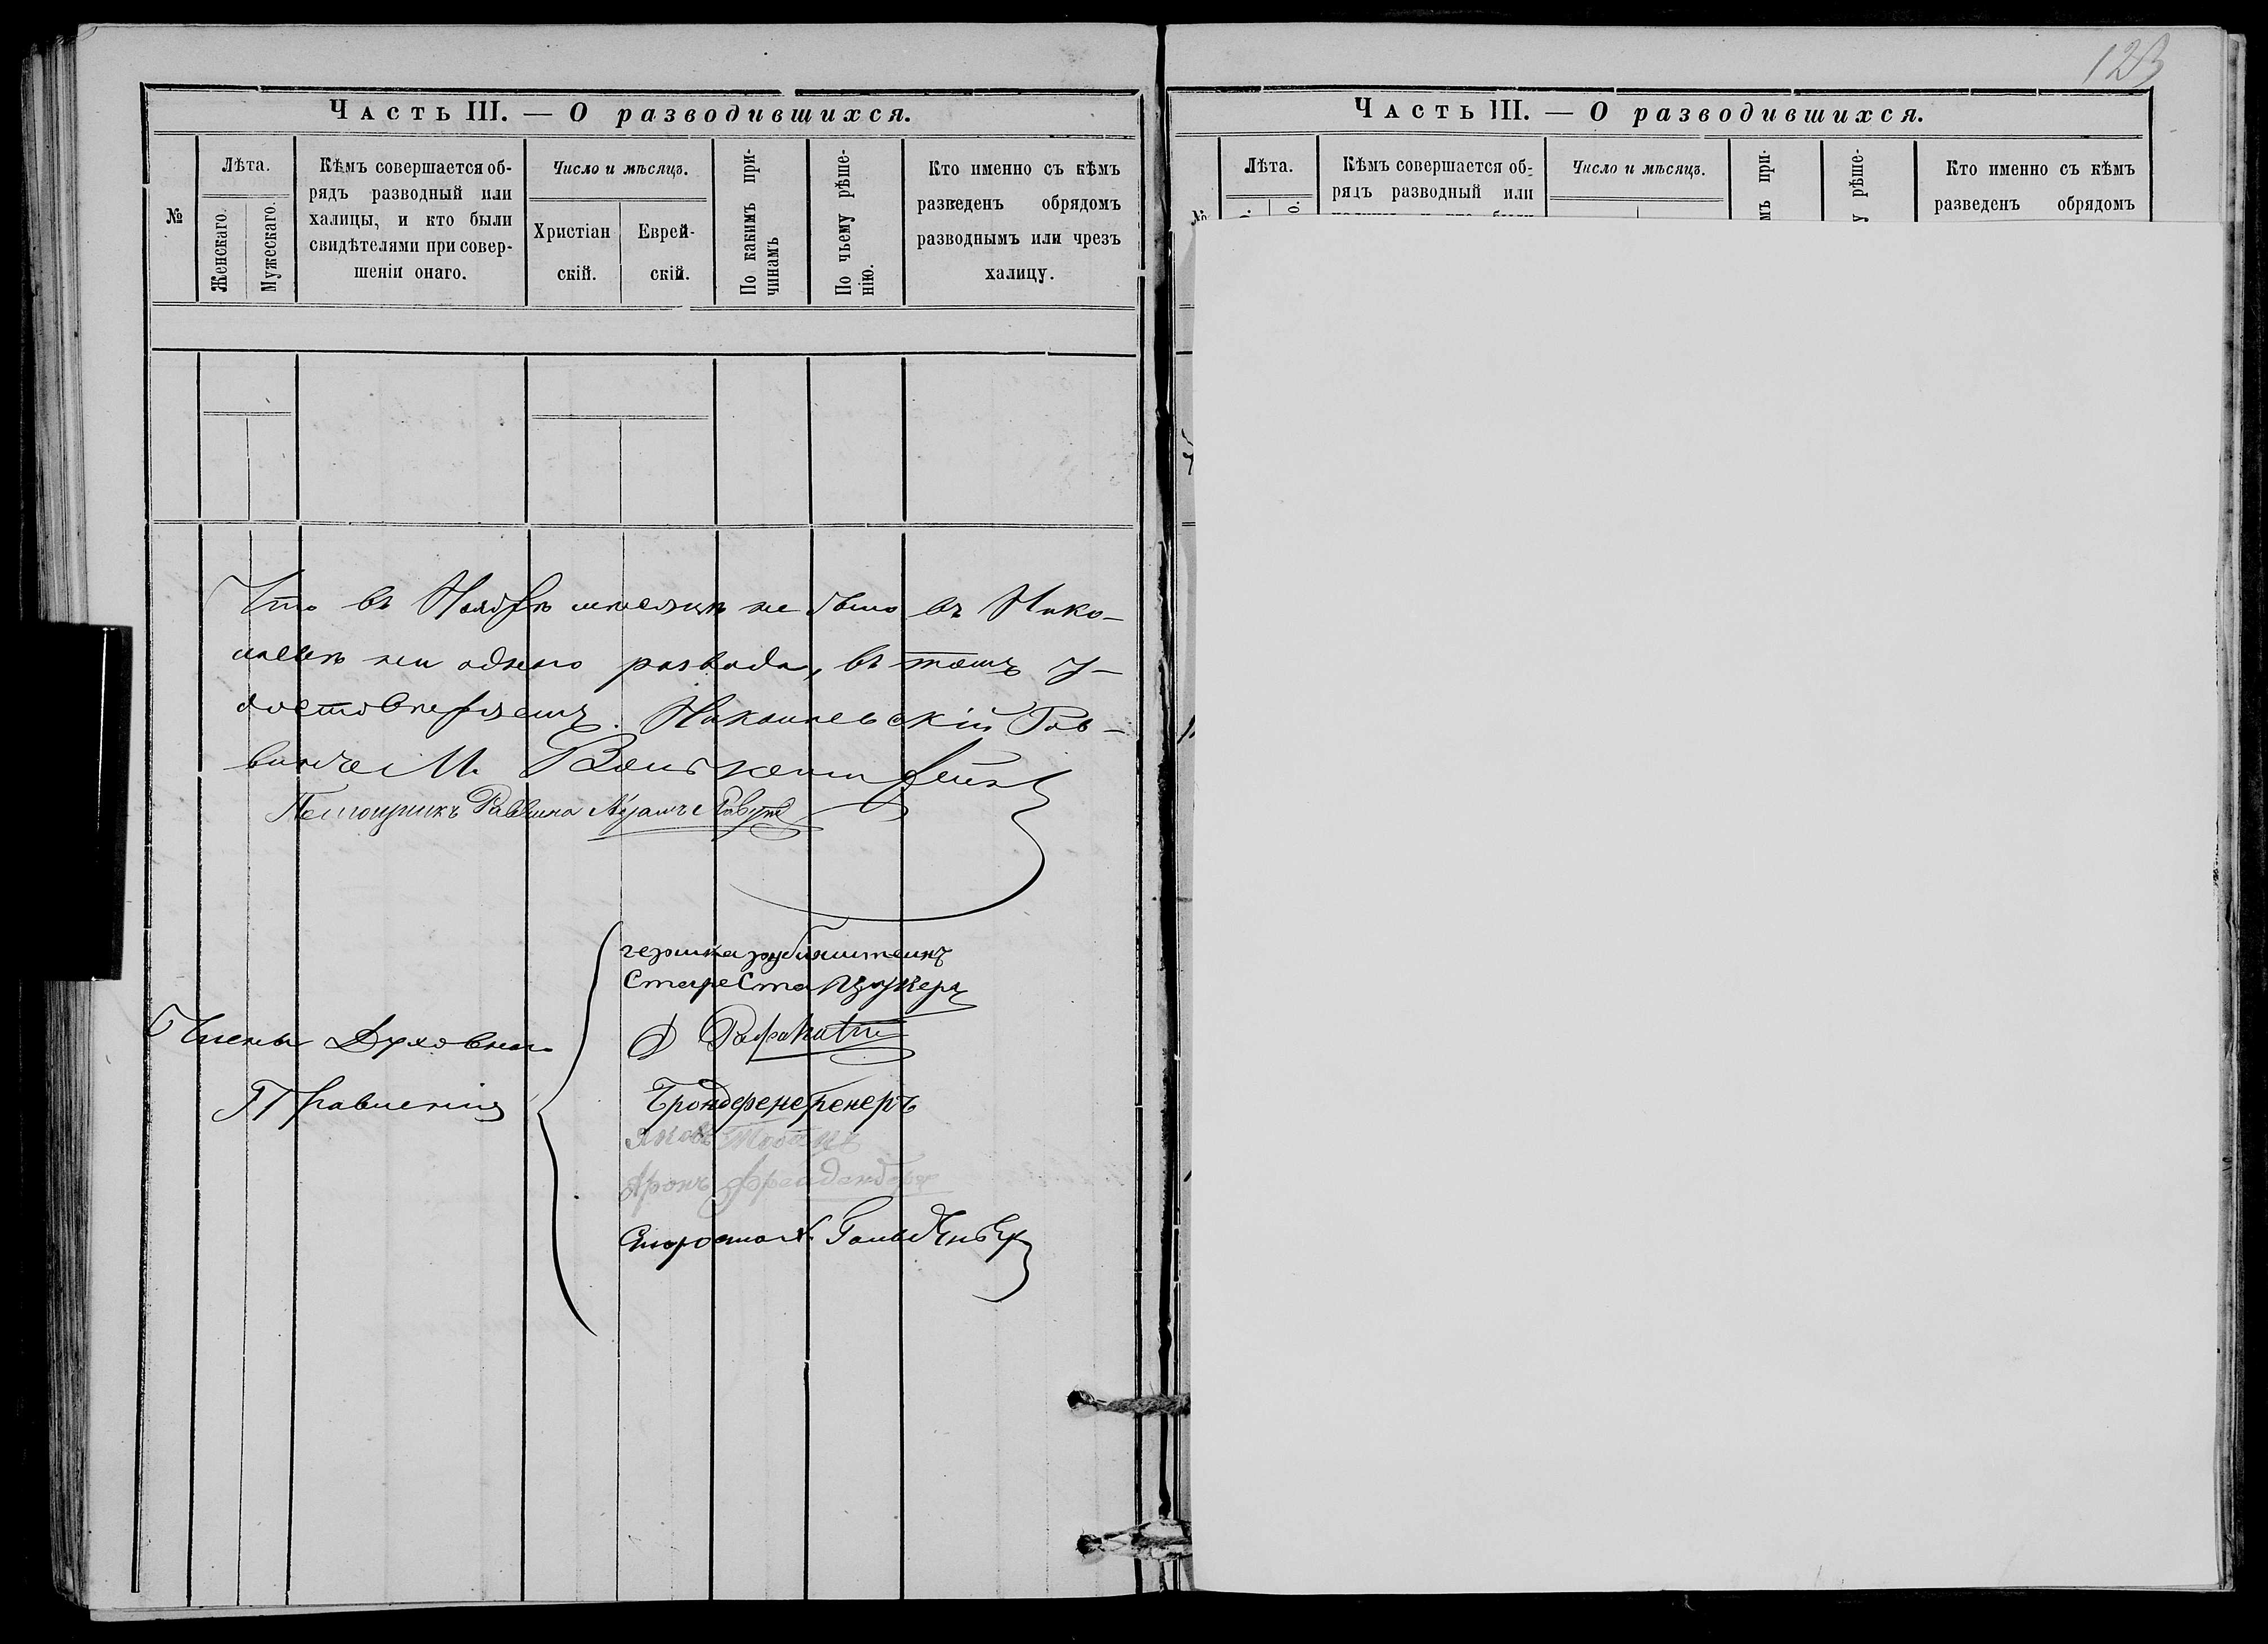 Часть III. — О разводившихся.
№
Лѣта.
Женскаго.
Мужескаго.
Кѣмъ совершается об-
рядъ разводный или
халицы, и кто были
свидѣтелями при совер-
шеніи онаго.
Число и мѣсяцъ.
Христіан
скій.
Еврей-
скій.
По какимъ при-
чинамъ
По чьему рѣше-
нію.
Кто именно съ кѣмъ
разведенъ обрядомъ
разводнымъ или чрезъ
халицу.
Что въ Ноябрѣ мѣсяцѣ не было въ Нико-
лаевѣ ни одного развода, въ томъ у-
достовѣряемъ. Николаевскій Рав-
винъ М.
Помощникъ Раввина
Староста Цукеръ
Члены Духовнаго
Правленія
Аронъ
Староста
123
Часть III. — О разводившихся.
№
Лѣта.
Кѣмъ совершается об-
рядъ разводный или
Число и мѣсяцъ.
мъ при-
у рѣше-
Кто именно съ кѣмъ
разведенъ обрядомъ